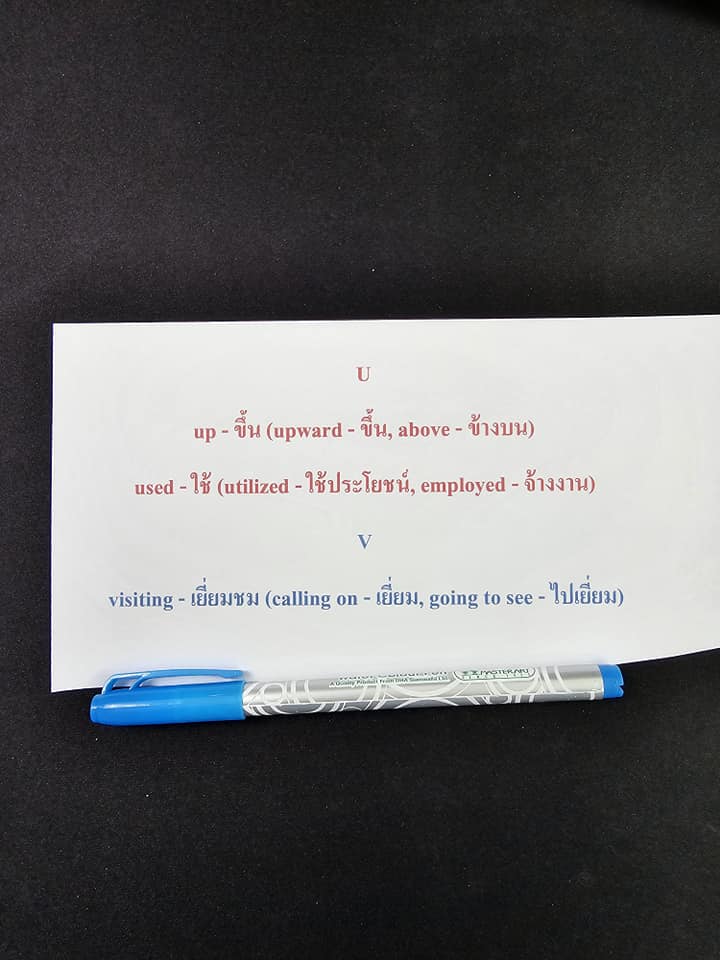 U
up - ขึ้น (upward - ขึ้น, above - ข้างบน)
used - ใช้ (utilized - ใช้ประโยชน์, employed - จ้างงาน)
V
visiting - เยี่ยมชม (calling on - เยี่ยม, going to see - ไปเยี่ยม)
MASTERART
A Quality Product From DHA Siamwalla Ltd.